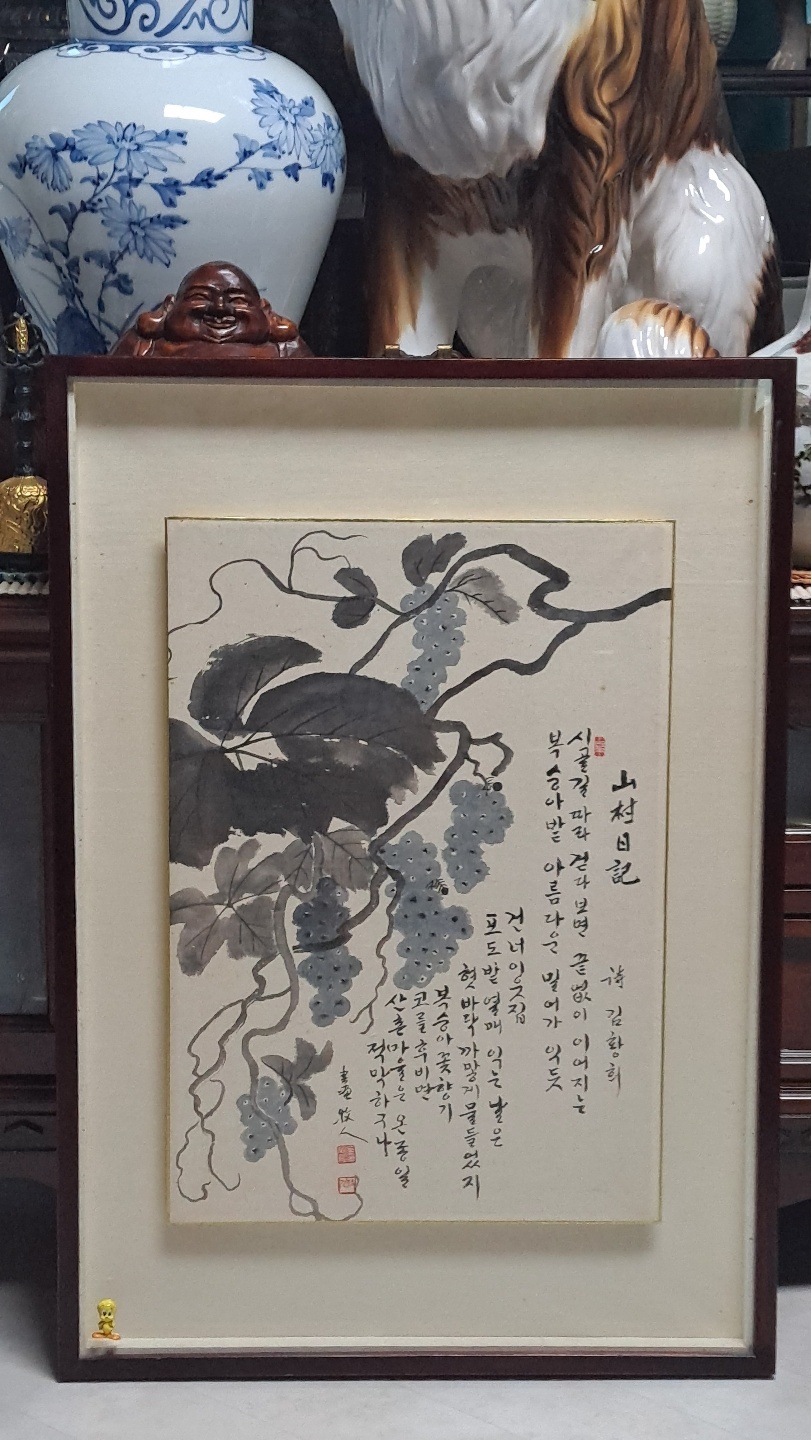 山村日記
詩 김황희
시골길 따라 걷다 보면 끝없이 이어지는
복숭아밭 아름다운 밀어가 익듯
건너이웃집
포도밭 열매 익는 날은
혓바닥 까맣게 물들었지
복숭아 꽃향기
코를 후비면
산촌마을은 온종일
적막하구나
畫 牧人